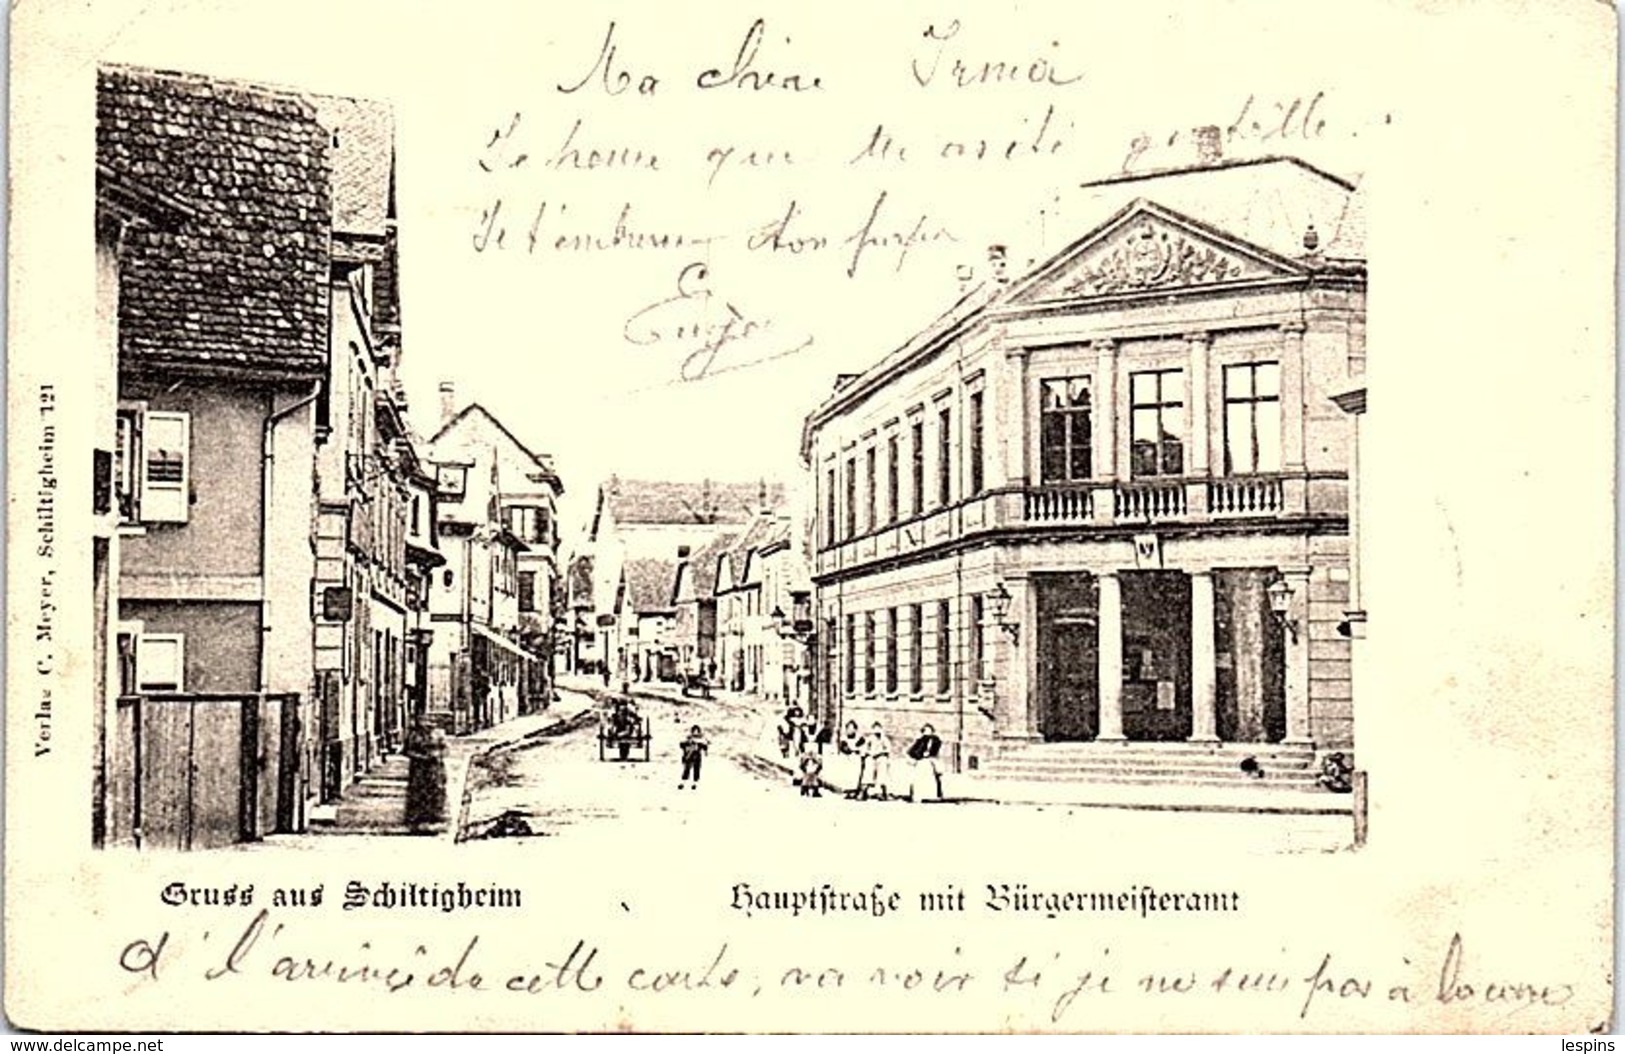 Ma chère Irma
Je t'embrasse Ton papa
Eugèn
Verlag C. Meyer, Schiltigheim 121
Gruss aus Schiltigheim
Hauptstraße mit Bürgermeisteramt
A l'arrivée de cette carte, va voir si je ne suis pas à la
www.delcampe.net
lespins